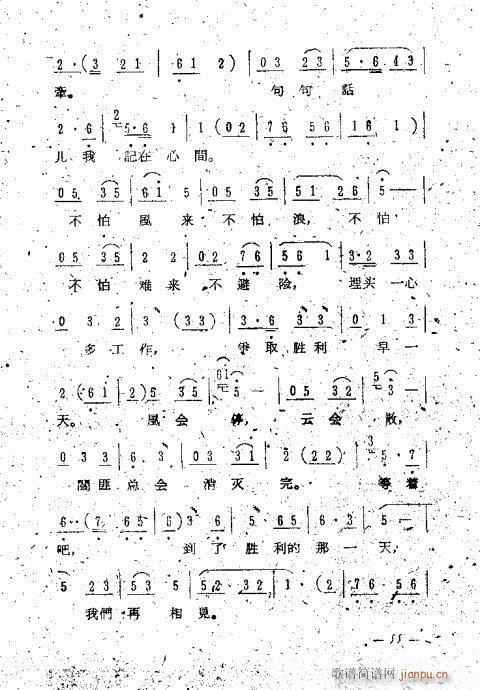 2·(3 21 | 61 2) | 03 23 | 5·6 43
牵。 句句話
2·6 | 5·6 | 1 (02 | 76 56 | 16 1)
儿我 記在心間。
05 35 | 61 5 | 05 35 | 51 26 | 5 —
不怕風来不怕浪，不怕
05 35 | 2 2 | 02 76 | 56 1 | 3·2 33
不怕难来不避险，埋头一心
0 3 2 | 3· (33) | 3·6 33 | 0 1 3
多工作，爭取胜利早一
2 (61 | 2) 5 35 | 5 — | 05 35 | 3 —
天。風会停，云会散，
033 | 6·3 | 03 31 | 2 (22) | 5·7
閻匪总会消灭完。等着
6·(7 65 | 6) 5 | 5·65 | 6·3 | 5 —
吧，到了胜利的那一天，
5 23 | 53 5 | 52 32 | 1·(2 | 76 56
我們再相見。
— 55 —
歌谱简谱网
jianpu.cn